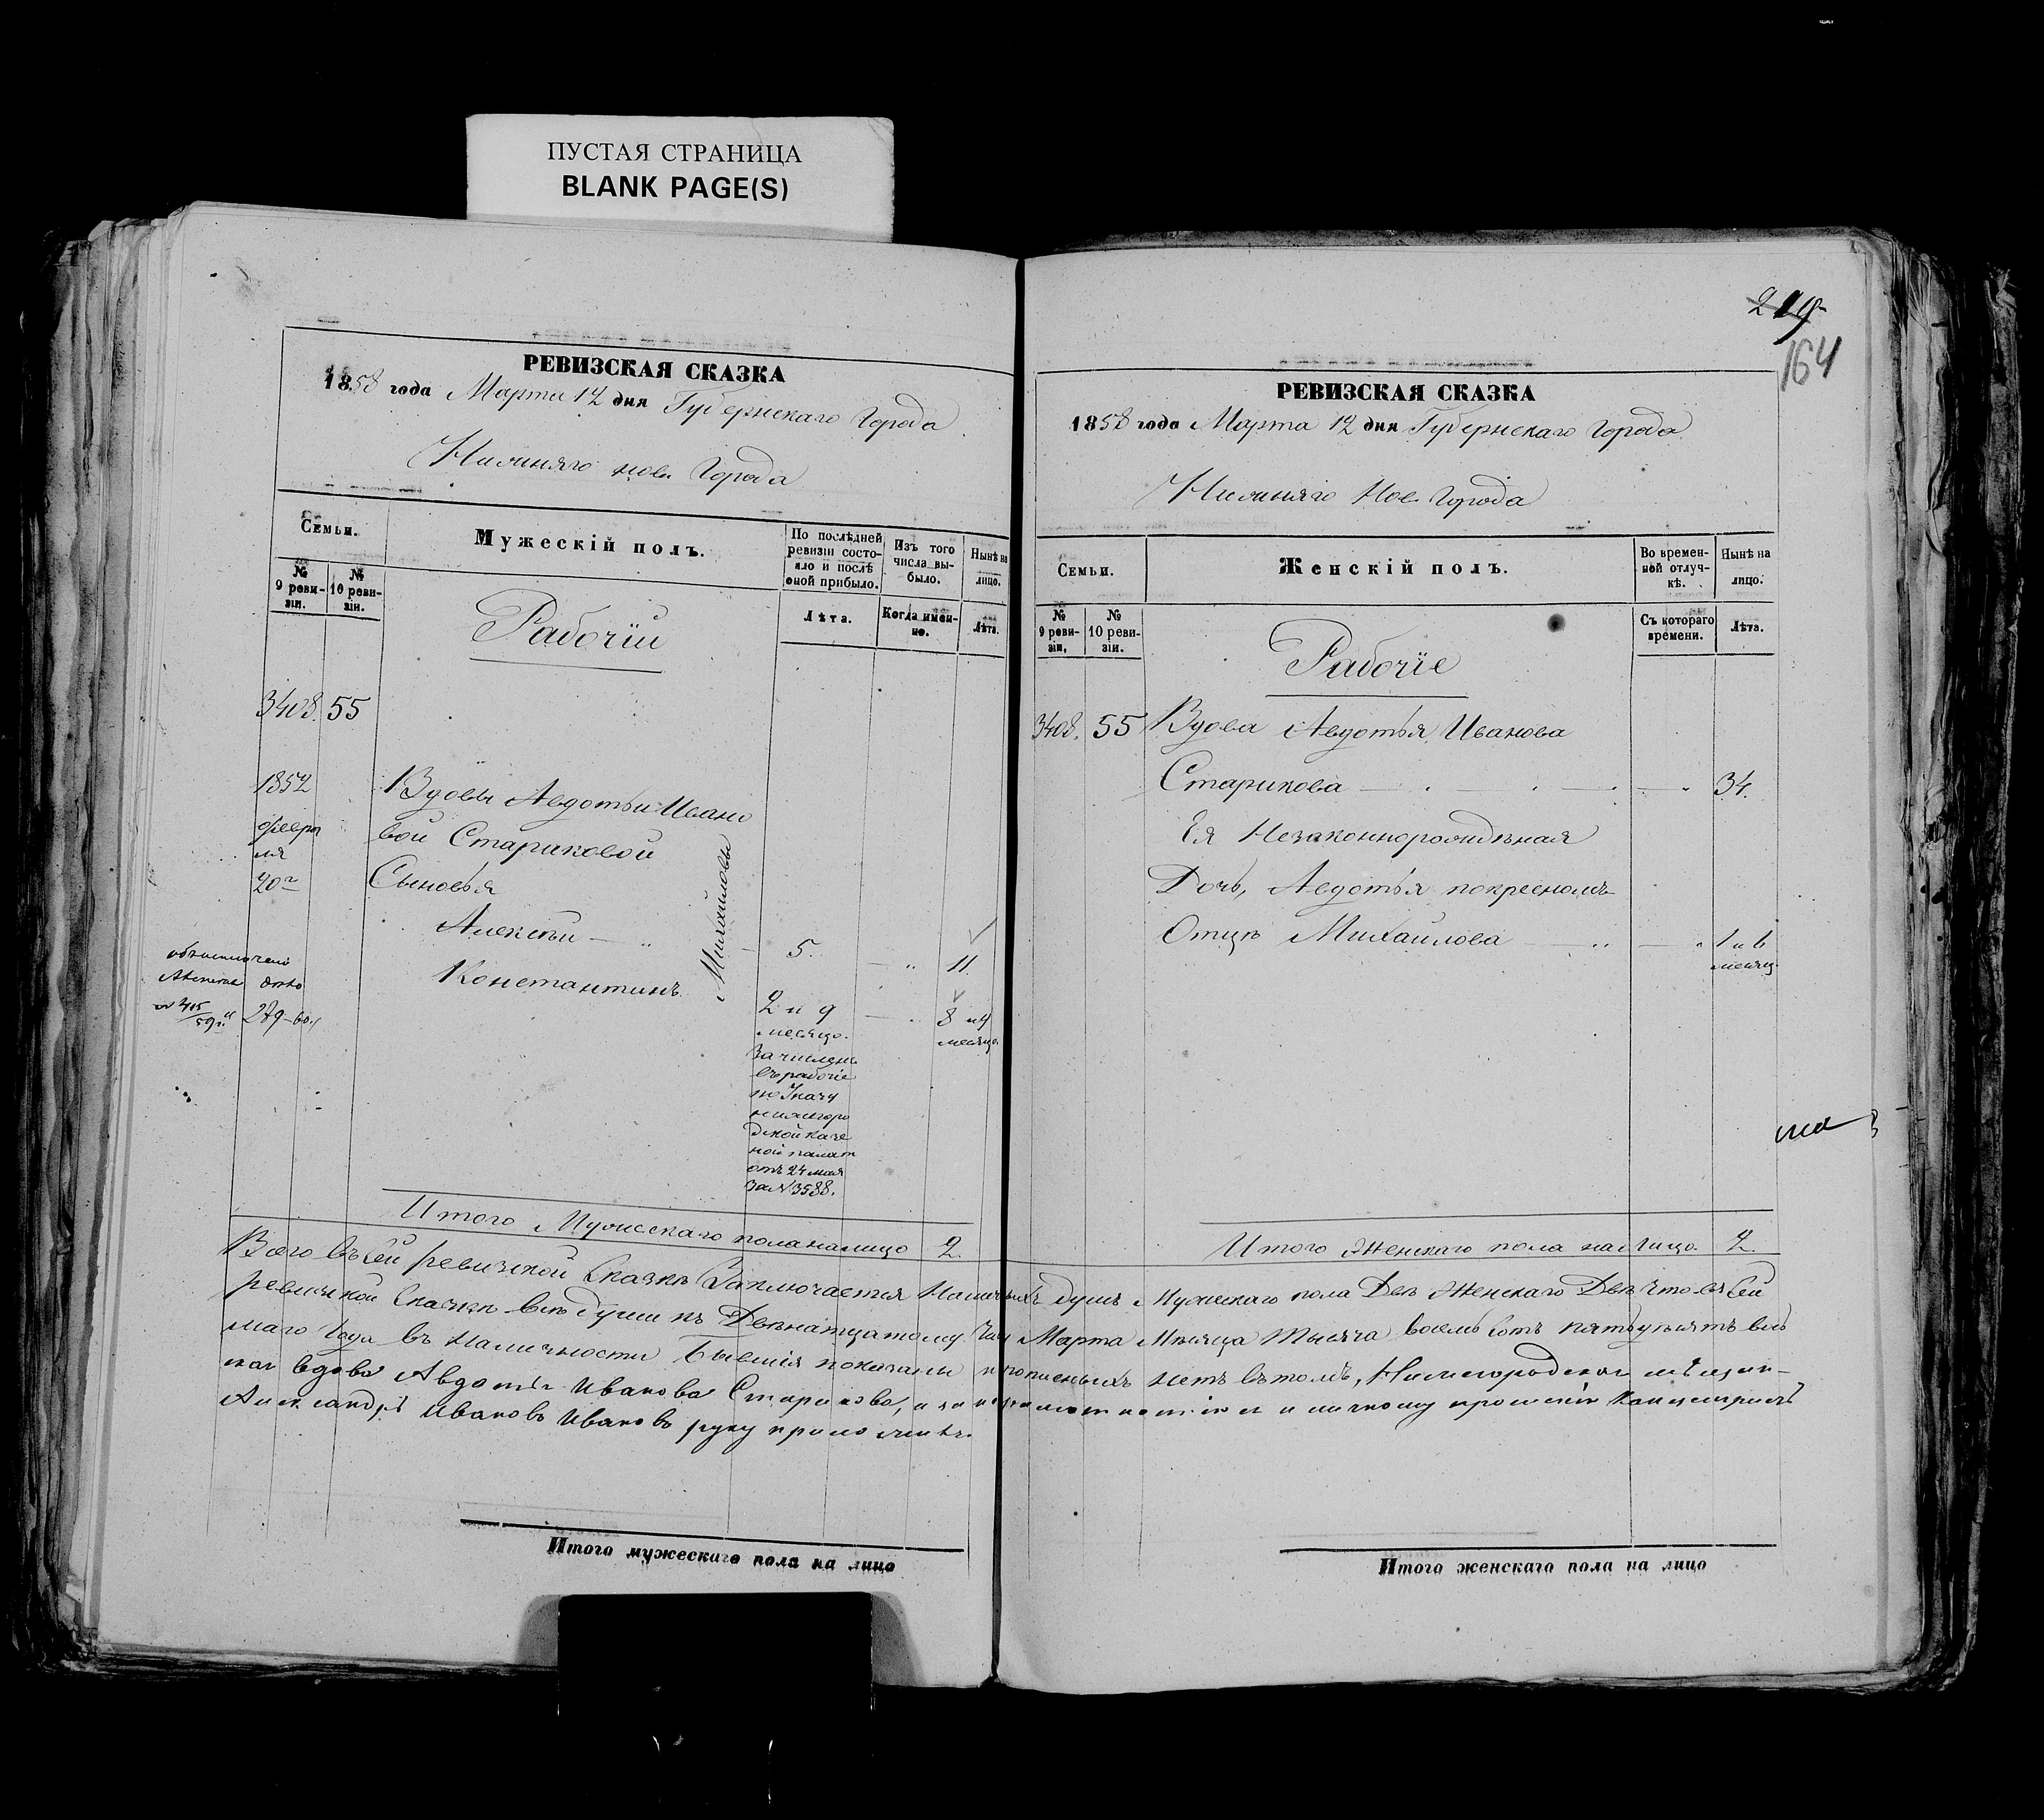 ПУСТАЯ СТРАНИЦА
BLANK PAGE(S)
РЕВИЗСКАЯ СКАЗКА
1858 года Марта 12 дня Губернскаго Города
Нижняго нов Города
Семьи.
Мужескій полъ.
По послѣдней ревизіи состояло и послѣ оной прибыло.
Изъ того числа выбыло.
Нынѣ на лицо.
№ 9 ревизіи.
№ 10 ревизіи.
Лѣта.
Когда именно.
Лѣта.
Рабочіи
3408. 55
1852
февра
ля
20
Вдовы Авдотьи Ивано
вой Стариковой
Сыновья
Михайловы
Алексѣй — „ 5. — „ 11.
Константинъ 2 и 9 — 8 и 9
месяцо. месяцо.
Зачислены
въ рабочіе
по Указу
нижегоро
дской казе
ной палат
отъ 24 мая
за № 3588.
279
Итого Мужескаго пола налицо 2.
219
164
РЕВИЗСКАЯ СКАЗКА
1858 года Марта 12 дня Губернскаго Города
Нижняго Нов Города
Семьи.
Женскій полъ.
Во временной отлучкѣ.
Нынѣ на лицо.
№ 9 ревизіи,
№ 10 ревизіи.
Съ котораго времени.
Лѣта.
Рабочіе
3408. 55 Вдова Авдотья Иванова
Старикова — 34.
Ея Незаконнорожденная
Дочь, Авдотья покресномъ
Отцѣ Михаилова — „ — „ 1 и 6
месяц.
Итого Женскаго пола на Лицо. 2.
Всего въ сей ревизской Сказкѣ Заключается Наличныхъ душъ Мужескаго пола Двѣ Женскаго Двѣ Что въ Сей
ревизской Сказки всѣ души къ Двѣнатцатому Числу Марта Мѣсяца Тысяча восемь сотъ пятдесятъ вось
маго Года въ наличности Бывшія показаны и прописныхъ нетъ въ томъ, Нижегородская мѣщан-
кая вдова Авдотья Иванова Старикова, а за неграмотностію ея и личному прошенію Канцеляристъ
Александръ Ивановъ Ивановъ руку приложилъ.
Итого мужескаго пола на лицо
Итого женскаго пола на лицо